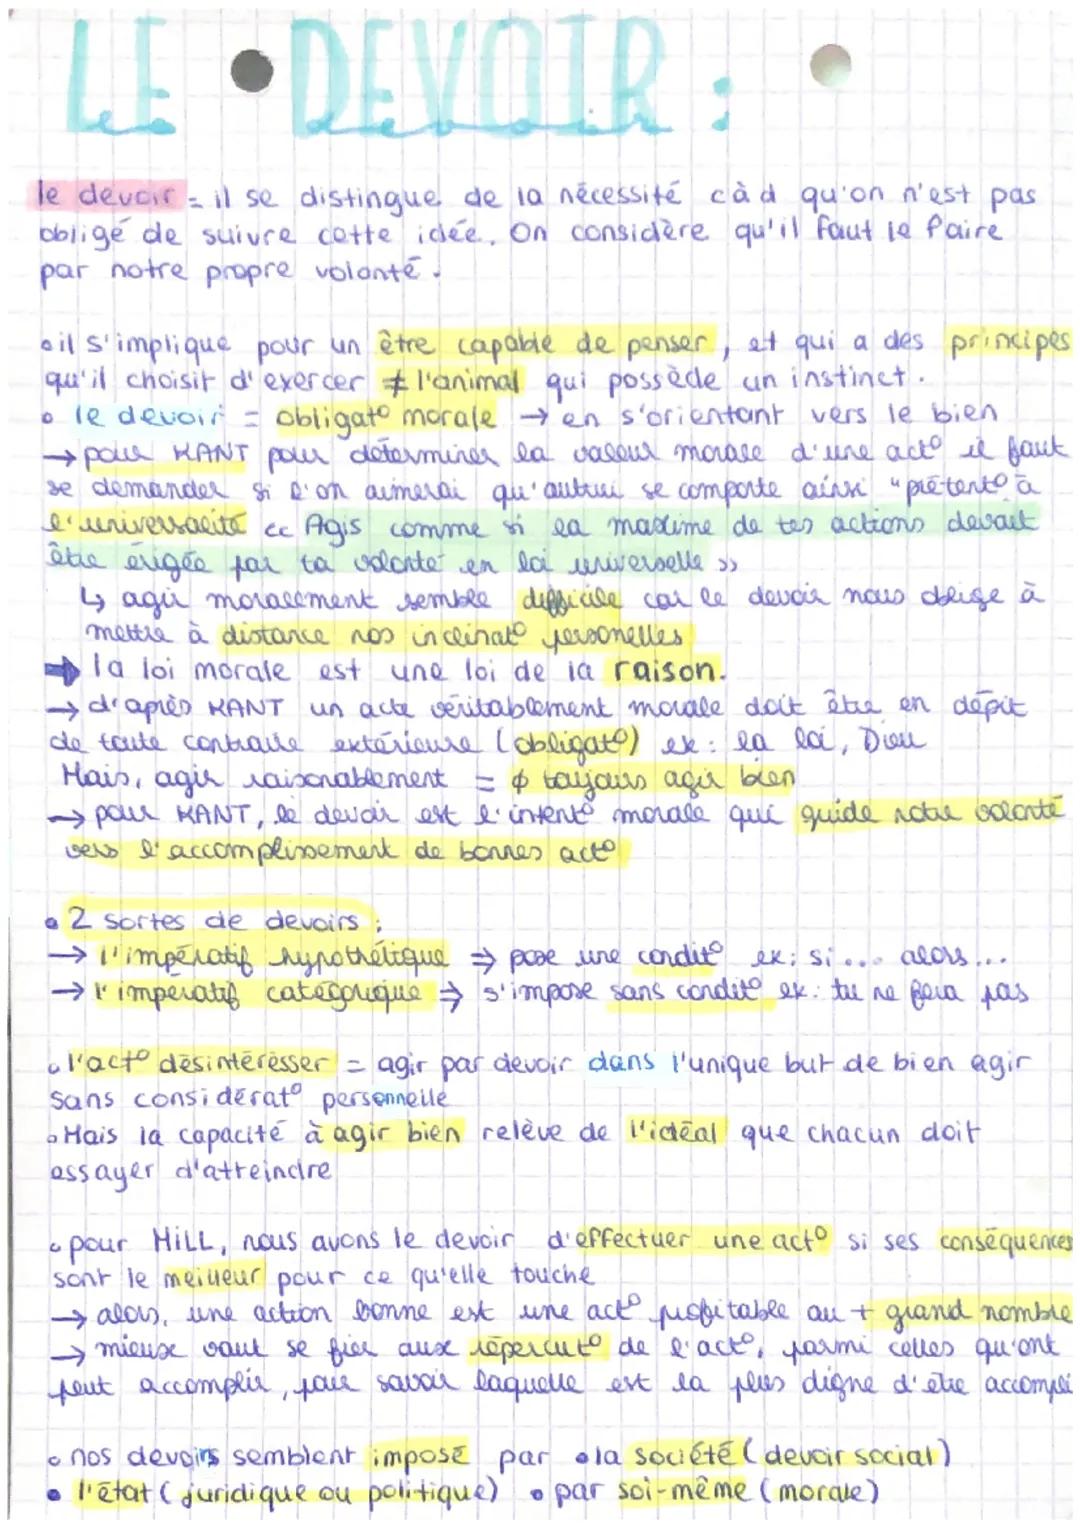 LE DEVOIR :
le devoir = il se distingue de la nécessité càd qu'on n'est pas
obligé de suivre cette idée. On considère qu'il faut le faire
par notre propre volonté.
• il s'implique pour un être capable de penser, et qui a des principes
qu'il choisit d'exercer ≠ l'animal qui possède un instinct.
• le devoir = obligat° morale → en s'orientant vers le bien
→ pour KANT pour déterminer la valeur morale d'une act° il faut
se demander si l'on aimerai qu'autrui se comporte ainsi "prétent° à
l'universalité << Agis comme si la maxime de tes actions devait
être érigée par ta volonté en loi universelle >>
↳ agir moralement semble difficile car le devoir nous oblige à
mettre à distance nos inclinat° personelles
➡ la loi morale est une loi de la raison.
→ d'après KANT un acte véritablement morale doit être en dépit
de toute contraire extérieure (obligat°) ex: la loi, Dieu
Mais, agir raisonablement = ∮ toujours agir bien
→ pour KANT, le devoir est l'intent° morale qui guide notre volonté
vers l'accomplissement de bonnes act°
• 2 sortes de devoirs :
→ l'impératif hypothétique ⇒ pose une condit° ex: si... alors...
→ l'impératif catégorique ⇒ s'impose sans condit° ex: tu ne fera pas
• l'act° désintéresser = agir par devoir dans l'unique but de bien agir
sans considérat° personnelle
• Mais la capacité à agir bien relève de l'idéal que chacun doit
essayer d'atteindre
• pour MiLL, nous avons le devoir d'effectuer une act° si ses conséquences
sont le meilleur pour ce qu'elle touche
→ alors, une action bonne est une act° profitable au + grand nombre
→ mieux vaut se fier aux répercut° de l'act°, parmi celles qu'ont
peut accomplir, pour savoir laquelle est la plus digne d'être accompli
• nos devoirs semblent imposé par • la société (devoir social)
• l'état (juridique ou politique) • par soi-même (morale)